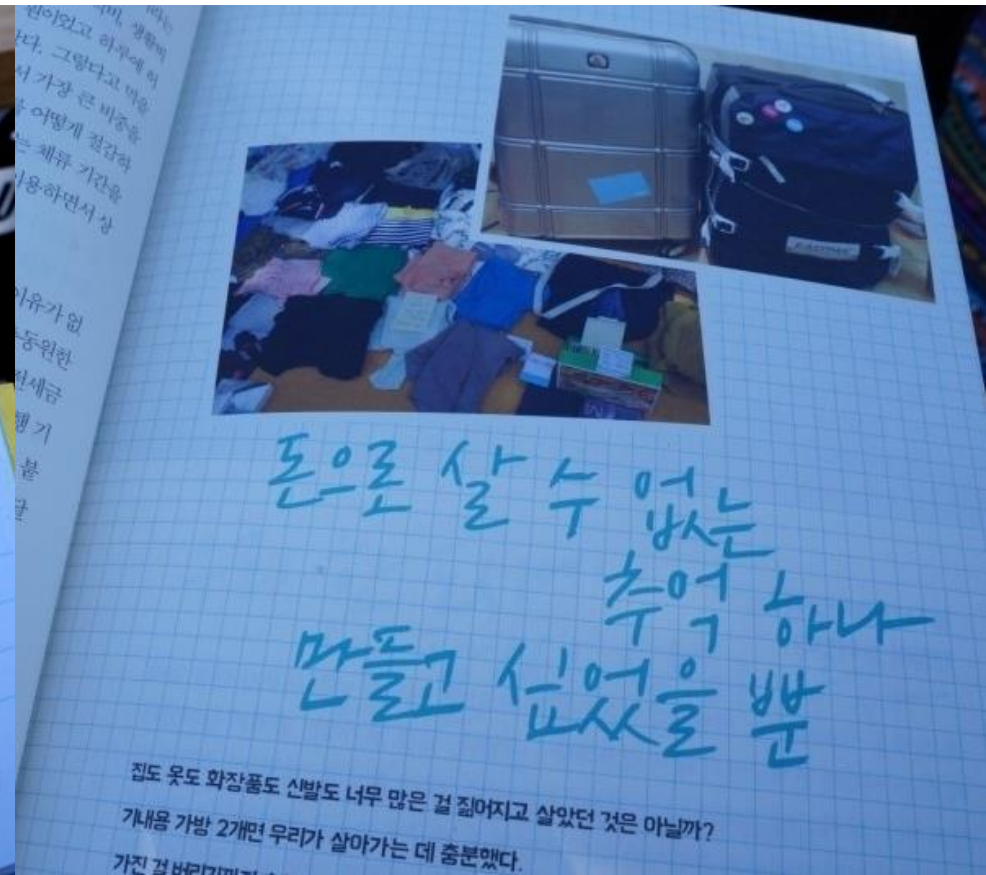 생활비
원이었고 하루에 허
다. 그렇다고 먹을
서 가장 큰 비중을
어떻게 절감하
는 체류 기간을
이용하면서 상
이유가 없
동원한
전세금
행 기
붙
달
EASTPAK
돈으로 살 수 없는
추억 하나
만들고 싶었을 뿐
집도 옷도 화장품도 신발도 너무 많은 걸 짊어지고 살았던 것은 아닐까?
기내용 가방 2개면 우리가 살아가는 데 충분했다.
가진 걸 버리기까지